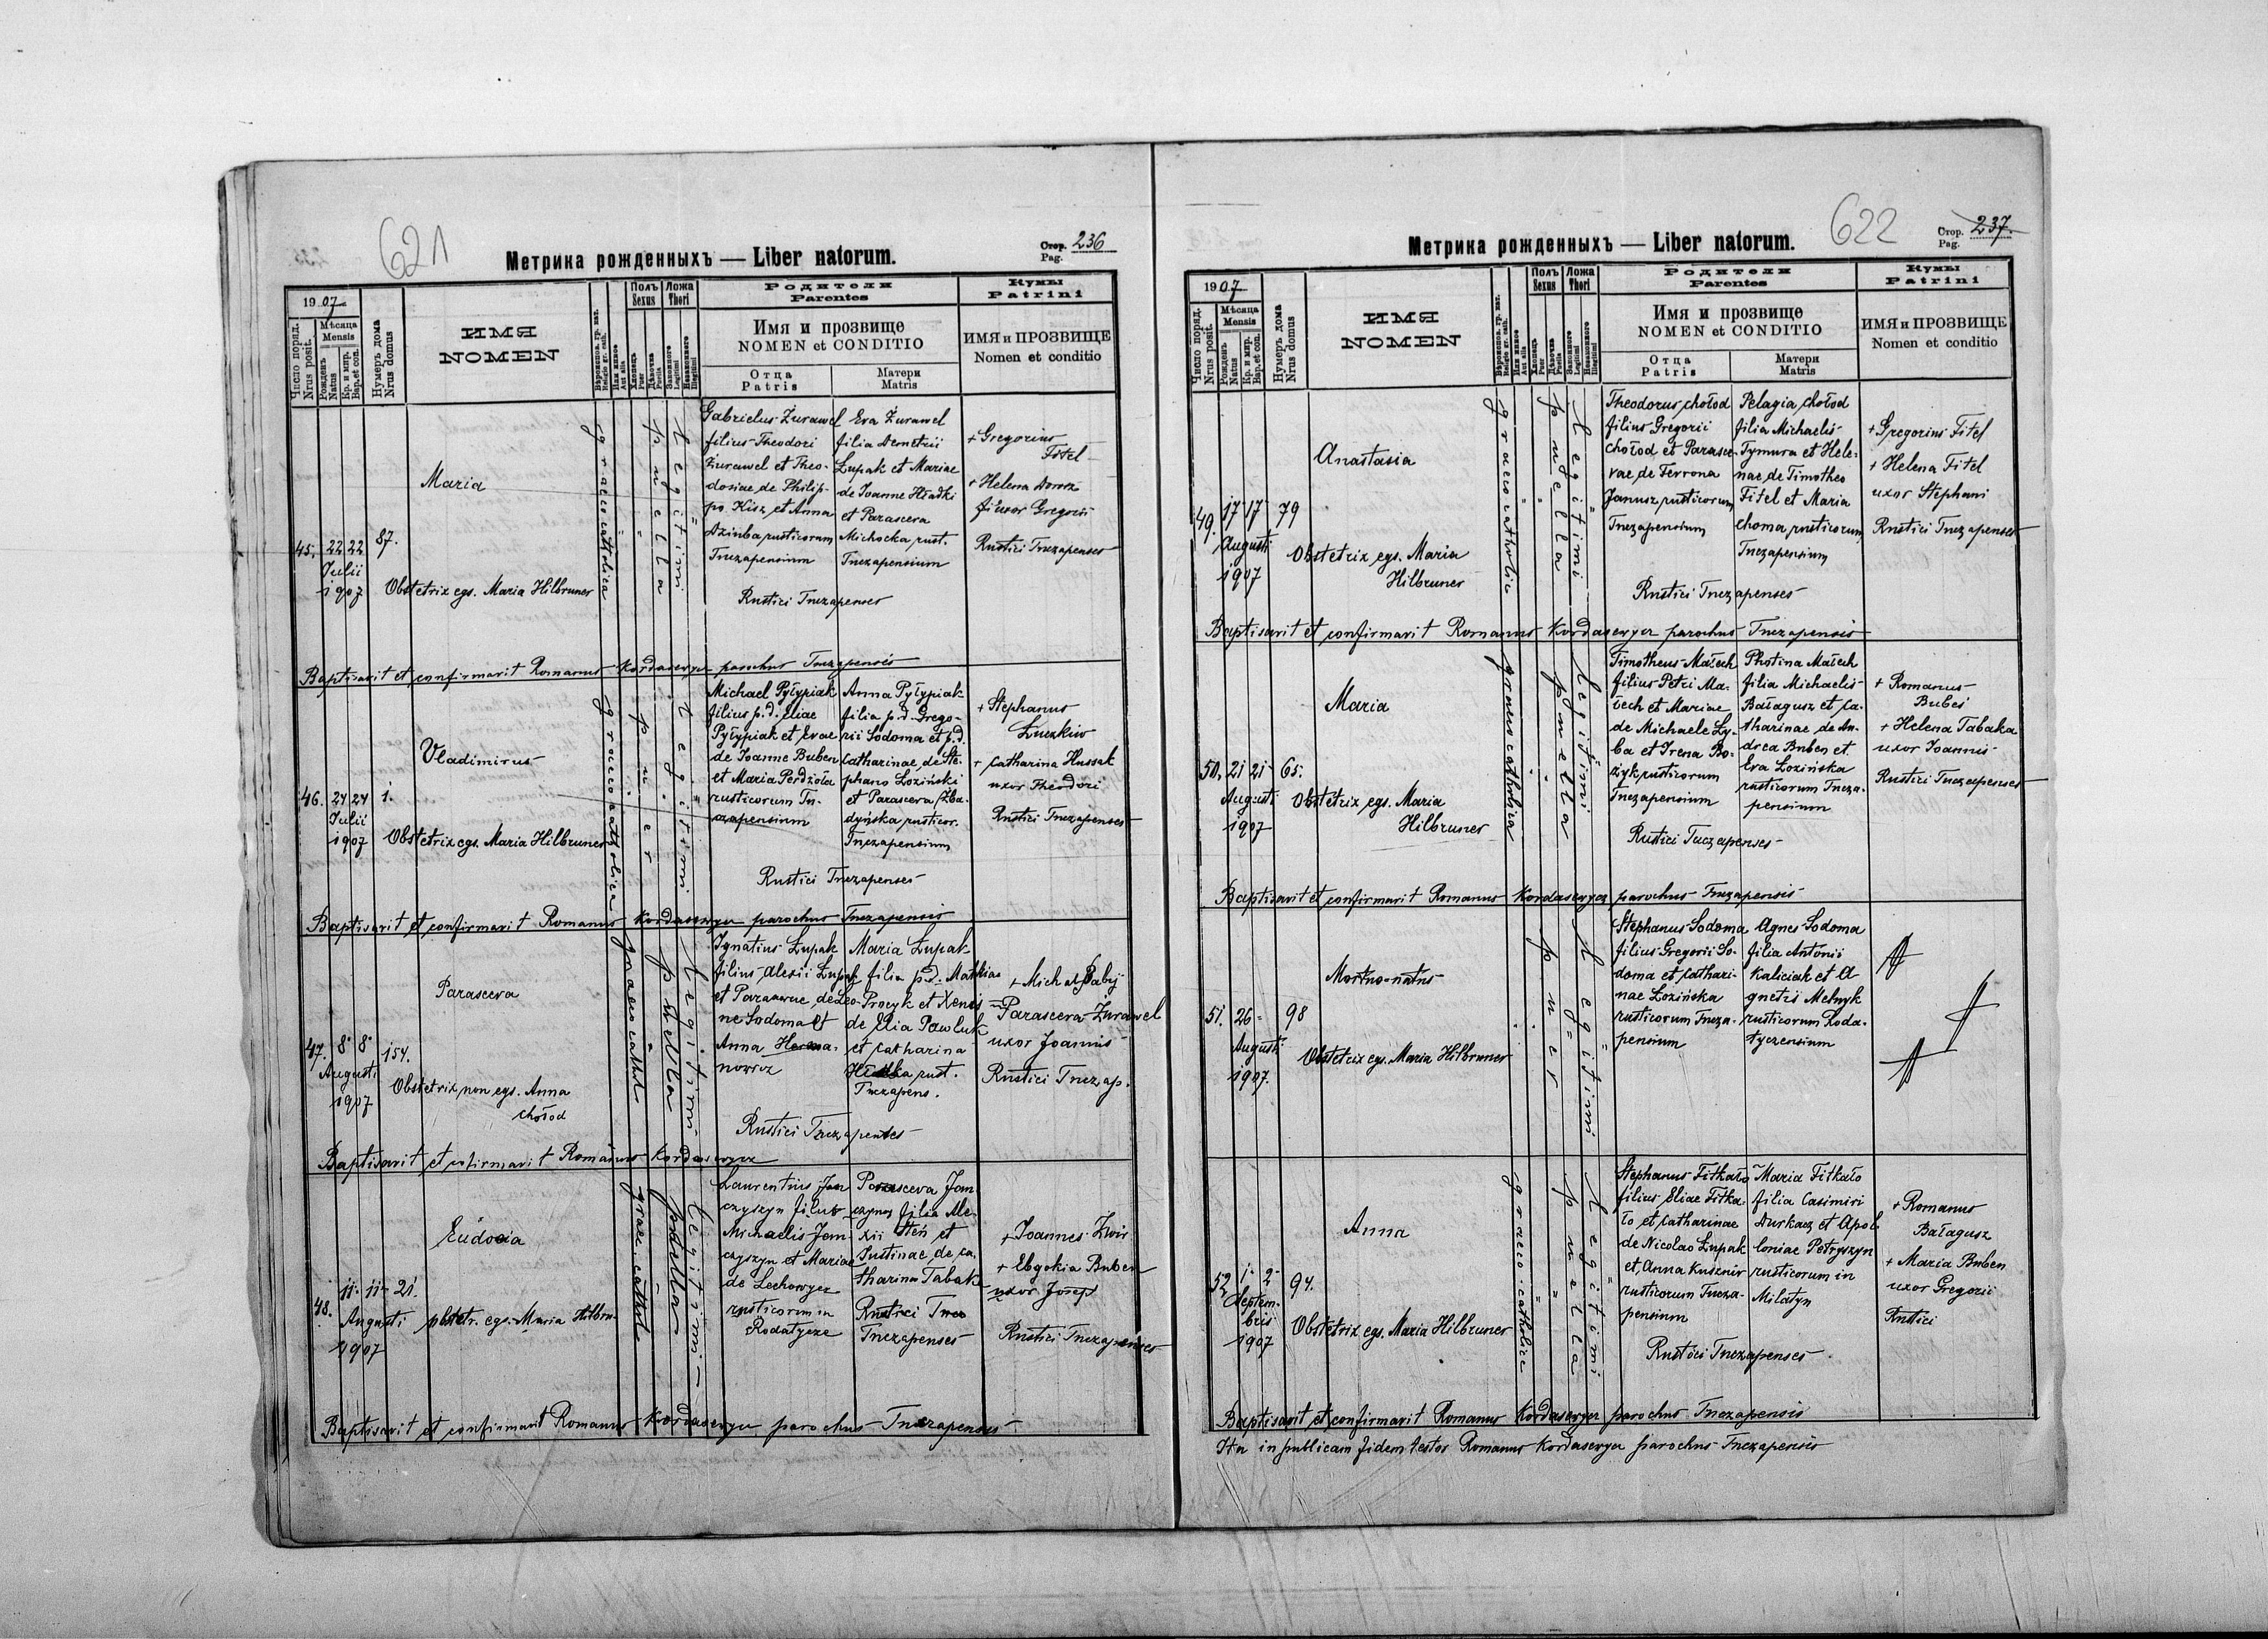 621
Метрика рожденныхъ — Liber natorum.
Стор. 236
Pag.
1907
Число поряд.
Nrus posit.
Мѣсяца
Mensis
Рожденъ
Natus
Кр. и мир.
Bap. et con.
Нумеръ дома
Nrus domus
ИМЯ
NOMEN
Полъ
Sexus
Ложа
Thori
Родители
Parentes
Имя и прозвище
NOMEN et CONDITIO
Отца
Patris
Матери
Matris
Кумы
Patrini
ИМЯ и ПРОЗВИЩЕ
Nomen et conditio
45. 22 22 87.
Julii
1907
Maria
Obstetrix egs. Maria Hilbruner
graeco catholica
puella
legitimi
Gabrielus Żurawel
filius Theodori
Żurawel et Theo-
dosiae de Philip-
po Kisz et Anna
Dziuba rusticorum
Tuczapensium
Eva Żurawel
filia Demetrii
Łupak et Mariae
de Joanne Hładki
et Parasceva
Michocka rust.
Tuczapensium
Rustici Tuczapenses
+ Gregorius
Fitel
+ Helena
uxor Gregorii
Rustici Tuczapenses
Baptisavit et confirmavit Romanus Kordasewycz parochus Tuczapensis
46. 24 24 1.
Julii
1907
Vladimirus
Obstetrix egs. Maria Hilbruner
graeco catholica
puer
legitimi
Michael Pyłypiak
filius p.d. Eliae
Pyłypiak et Evae
de Joanne Buben
et Maria Perdzioła
rusticorum Tu-
czapensium
Anna Pyłypiak
filia p.d. Grego-
rii Sodoma et p.d.
Catharinae de Ste-
phano Łoziński
et Parasceva Żba-
dyńska rusticor.
Tuczapensium
Rustici Tuczapenses
+ Stephanus
Łuczkiw
+ Catharina Hussak
uxor Theodori
Rustici Tuczapenses
Baptisavit et confirmavit Romanus Kordasewycz parochus Tuczapensis
47. 8 8 154.
Augusti
1907
Parasceva
Obstetrix non egs. Anna
Chołod
graeco cathol
puella
legitimi
Ignatius Łupak
filius Alexii Łupak
et Parascevae de Leo-
ne Sodoma et
Anna
nowicz
Maria Łupak
filia p.d. Mathiae
Procyk et Xenois
de Elia Pawluk
et Catharina
rust.
Tuczapens.
Rustici Tuczapenses
+ Michael Babij
= Parasceva Żurawel
uxor Joannis
Rustici Tuczap.
Baptisavit et cofirmavit Romanus Kordasewycz
48. 11 11 21.
Augusti
1907
Eudocia
obstetr. egs. Maria Hilbru-
graec. cathol
puella
legitimi
Laurentius Jan
czyszyn filius
Michaelis Jan-
czyszyn et Mariae
de Lechowycz
rusticorum in
Rodatycze
Parasceva Jan
czyszyn filia Ale-
xii Steń et
Justinae de Ca
tharina Tabak
Rustici
Tuczapenses
+ Joannes Żwir
+ Ebgokia Buben
uxor Josep
Rustici Tuczapenses
Baptisavit et confirmavit Romanus Kordasewycz parochus Tuczapensis
622
Метрика рожденныхъ — Liber natorum.
Стор. 237.
Pag.
1907
Число поряд.
Nrus posit.
Мѣсяца
Mensis
Рожденъ
Natus
Кр. и мир.
Bap. et con.
Нумеръ дома
Nrus domus
ИМЯ
NOMEN
Полъ
Sexus
Ложа
Thori
Родители
Parentes
Имя и прозвище
NOMEN et CONDITIO
Отца
Patris
Матери
Matris
Кумы
Patrini
ИМЯ и ПРОЗВИЩЕ
Nomen et conditio
49. 17 17 79
Augusti
1907
Anastasia
Obstetrix egs. Maria
Hilbruner
graeco catholic
puella
legitimi
Theodorus Chołod
filius Gregorii
Chołod et Parasce-
vae de Ferrona
Janusz rusticorum
Tuczapensium
Pelagia Chołod
filia Michaelis
Tymura et Hele-
nae de Timotheo
Fitel et Maria
Choma rusticorum
Tuczapensium
Rustici Tuczapenses
+ Gregorius Fitel
+ Helena Fitel
uxor Stephani
Rustici Tuczapenses
Baptisavit et confirmavit Romanus Kordasewycz parochus Tuczapensis
50. 21 21 65.
Augusti
1907
Maria
Obstetrix egs. Maria
Hilbruner
graeco catholica
puella
legitimi
Timotheus Małech
filius Petri Ma-
łech et Mariae
de Michaele Ły-
ba et Irena Bo-
żyk rusticorum
Tuczapensium
Photina Małech
filia Michaelis
Bałagusz et Ca-
tharinae de An-
drea Buben et
Eva Łozińska
rusticorum Tucza-
pensium
Rustici Tuczapenses
+ Romanus
Bubes
+ Helena Tabaka
uxor Joannis
Rustici Tuczapenses
Baptisavit et confirmavit Romanus Kordasewycz parochus Tuczapensis
51. 26 98
Augusti
1907.
Mortuo-natus
Obstetrix egs. Maria Hilbruner
puer
legitimi
Stephanus Sodoma
filius Gregorii So-
doma et Cathari-
nae Łozińska
rusticorum Tucza-
pensium
Agnes Sodoma
filia Antonii
Kaliciak et A
gnetis Melnyk
rusticorum Roda-
tyczensium
52. 1 2 94.
Septem-
bris
1907
Anna
Obstetrix egs. Maria Hilbruner
graeco-catholic
puella
legitimi
Stephanus Fitkało
filius Eliae Fitka-
ło et Catharinae
de Nicolao Łupak
et Anna Kusznir
rusticorum Tucza-
pensium
Maria Fitkało
filia Casimiri
Durkacz et Apol-
loniae Petryszyn
rusticorum in
Milatyn
Rustici Tuczapenses
+ Romanus
Bałagusz
+ Maria Buben
uxor Gregorii
Rustici
Baptisavit et confirmavit Romanus Kordasewycz parochus Tuczapensis
Ita in publicam fidem testor Romanus Kordasewycz parochus Tuczapensis